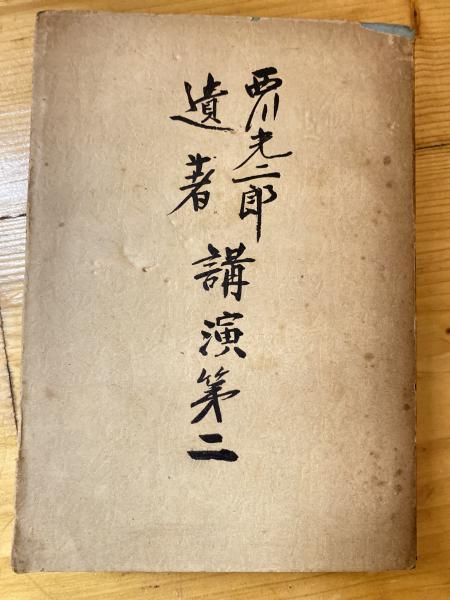 西川光二郎
遺著
講演第二